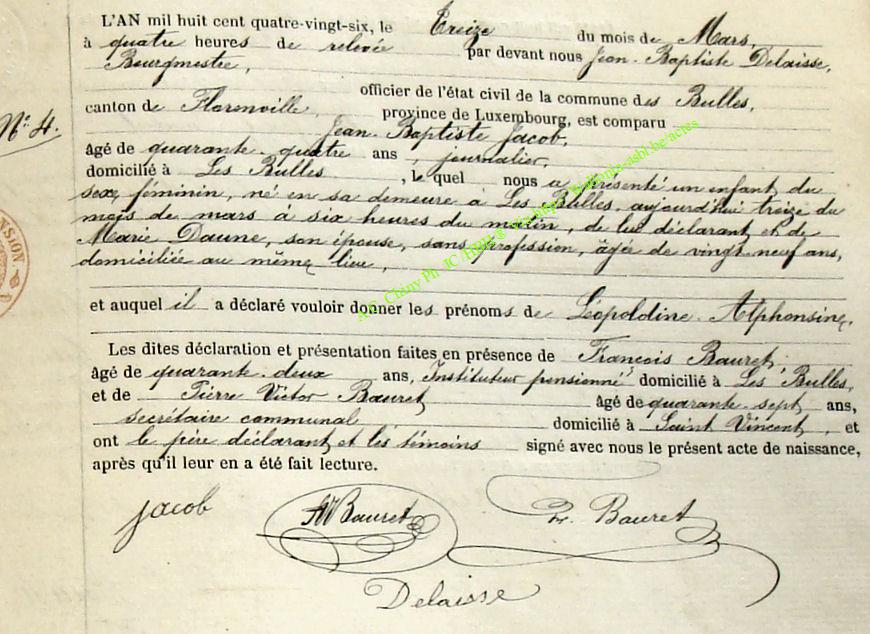 L'AN mil huit cent quatre-vingt-six, le Treize du mois de Mars,
à quatre heures de relevée par devant nous Jean-Baptiste Delaisse,
Bourgmestre,
officier de l'état civil de la commune des Bulles,
canton de Florenville, province de Luxembourg, est comparu
N° 4.
Jean-Baptiste Jacob,
âgé de quarante-quatre ans, journalier,
domicilié à Les Bulles, lequel nous a présenté un enfant du
sexe féminin, né en sa demeure à Les Bulles, aujourd'hui treize du
mois de mars à six heures du matin, de lui déclarant et de
Marie Daune, son épouse, sans profession, âgée de vingt-neuf ans,
domiciliée au même lieu,
et auquel il a déclaré vouloir donner les prénoms de Léopoldine-Alphonsine.
Les dites déclaration et présentation faites en présence de François Bauret,
âgé de quarante-deux ans, Instituteur pensionné, domicilié à Les Bulles,
et de Pierre Victor Bauret âgé de quarante-sept ans,
secrétaire communal domicilié à Saint Vincent, et
ont le père déclarant et les témoins signé avec nous le présent acte de naissance,
après qu'il leur en a été fait lecture.
Jacob Bauret Bauret
Delaisse